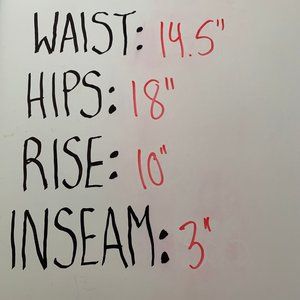 WAIST: 14.5"
HIPS: 18"
RISE: 10"
INSEAM: 3"